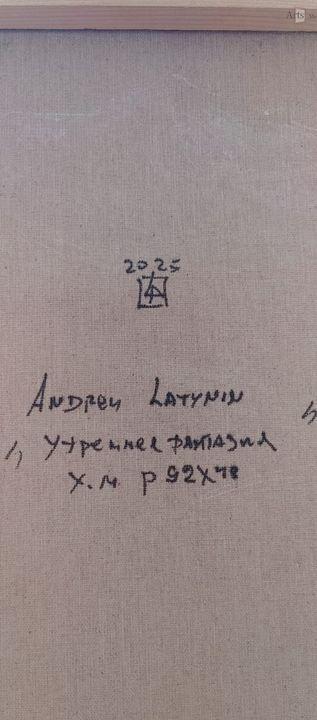 Arts
2025
ANDREY LATYNIN
„ Утренняя фантазия "
Х. м р 92х78